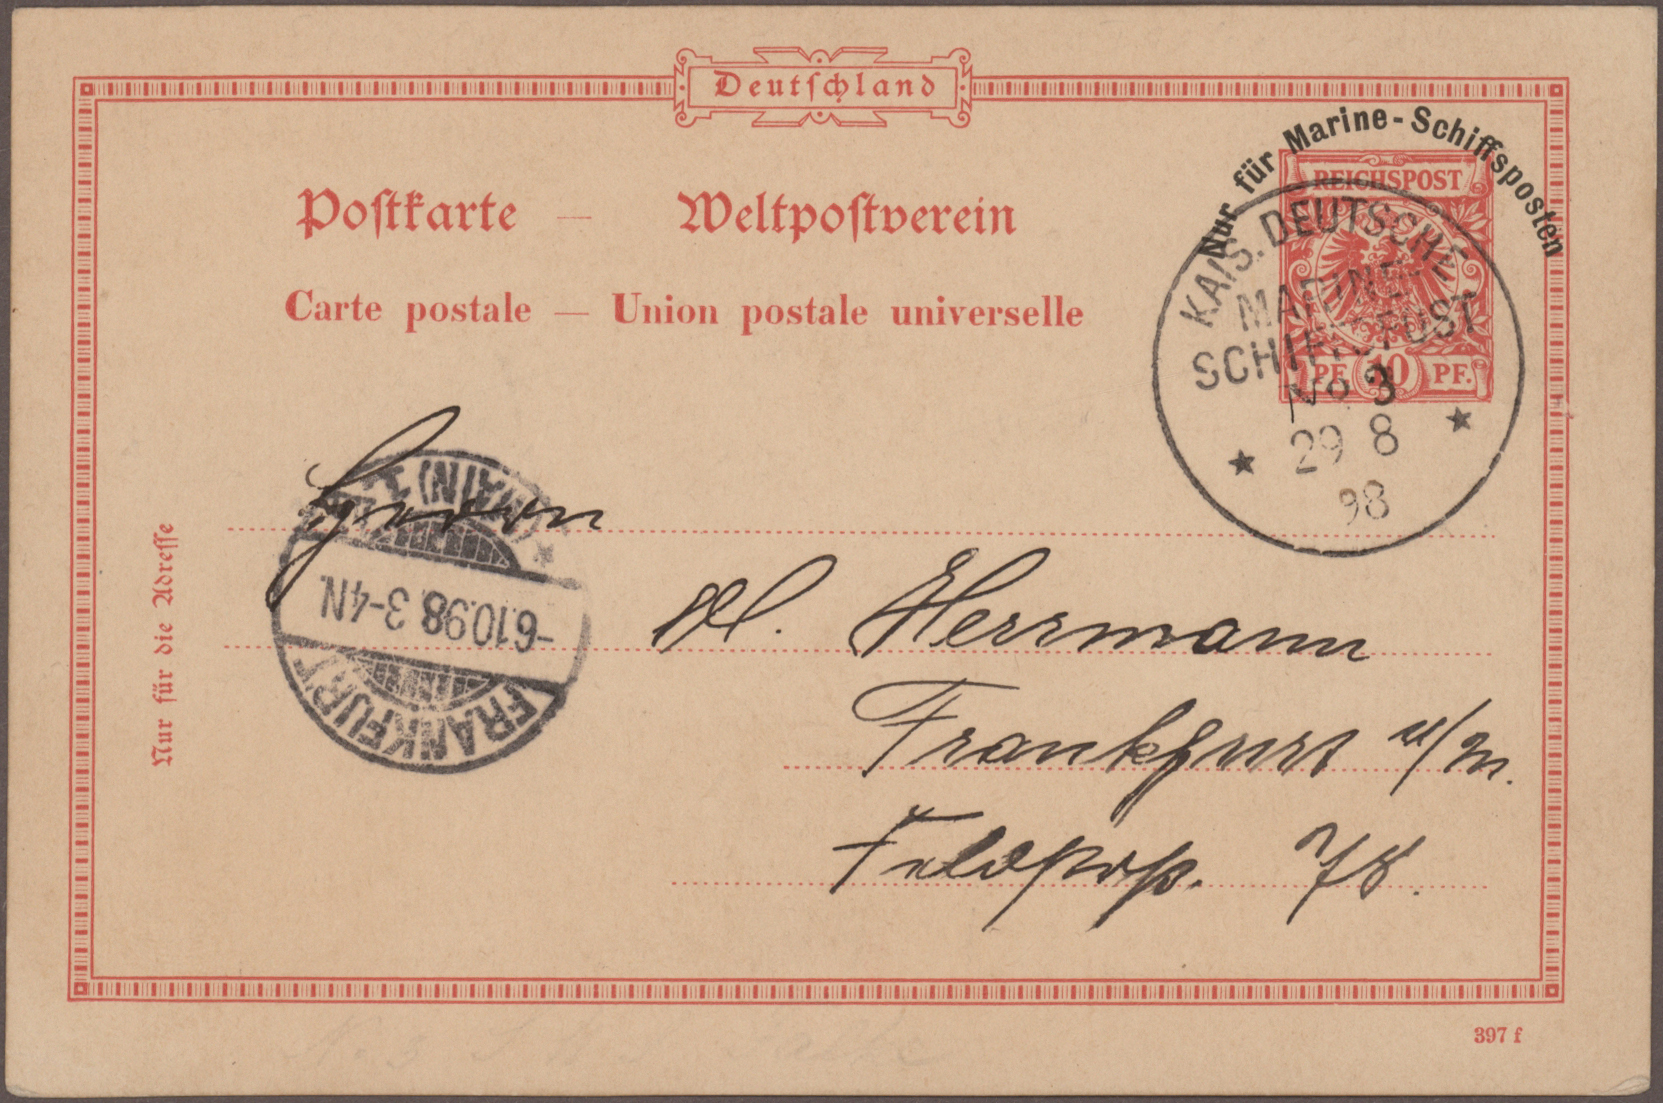 Deutschland
Nur für Marine-Schiffsposten
REICHSPOST
PF 10 PF.
KAIS. DEUTSCHE
MARINE-
SCHIFFSPOST
No 3
29 8
98
Postkarte — Weltpostverein
Carte postale — Union postale universelle
Nur für die Adresse
Herrn
FRANKFURT (MAIN) 1
-6.10.98.3-4N.
Herrmann
Frankfurt a/M.
397 f